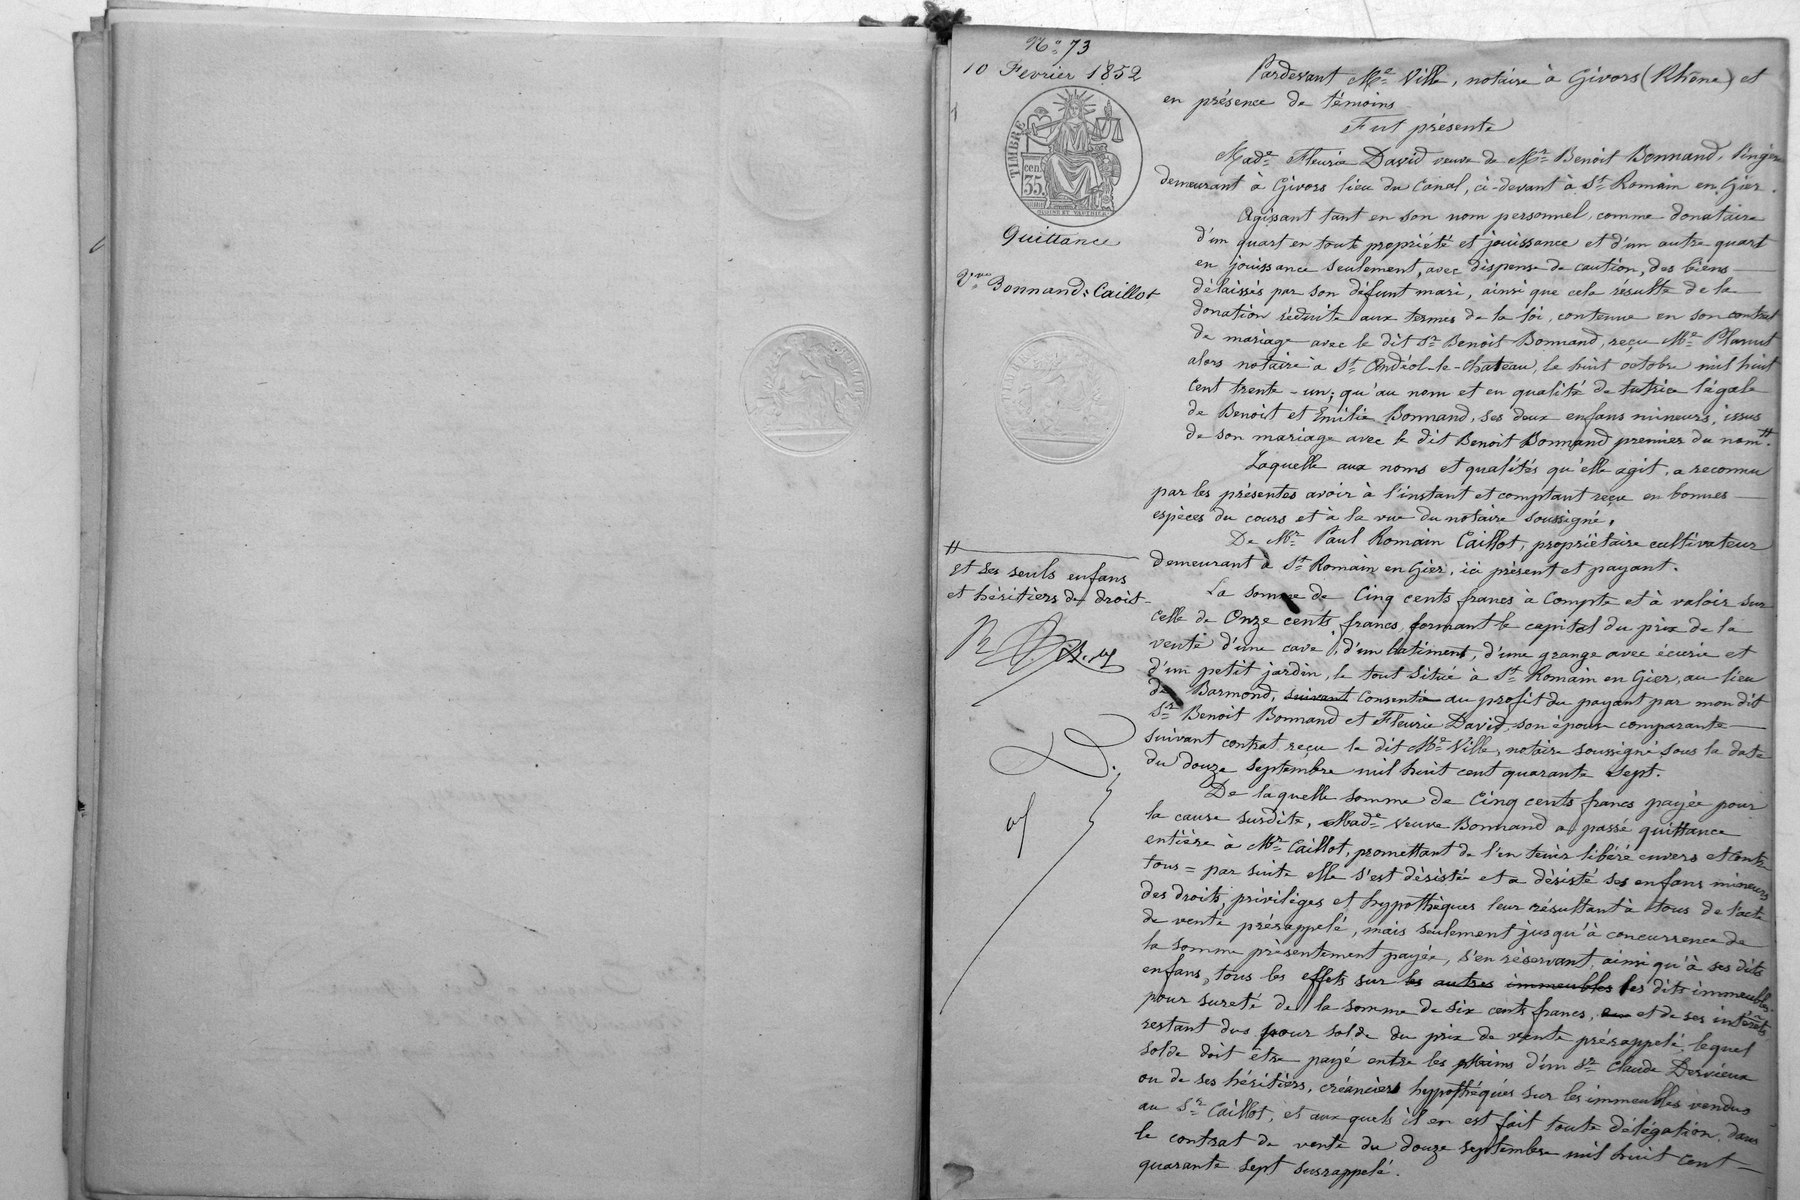 N° 73
10 Février 1852
TIMBRE
cen.
35
Quittance
Vve Bonnand = Caillot
#
et ses seuls enfans
et héritiers de droit
Pardevant Me Ville, notaire à Givors (Rhône) et
en présence de témoins
Fut présente
Made Fleurie David veuve de Mr Benoit Bonnand, lingère
demeurant à Givors lieu du Canal, ci-devant à St Romain en Gier.
Agissant tant en son nom personnel, comme donataire
d'un quart en toute propriété et jouissance et d'un autre quart
en jouissance seulement, avec dispense de caution, des biens
délaissés par son défunt mari, ainsi que cela résulte de la
donation réduite aux termes de la loi, contenue en son contrat
de mariage avec le dit Sr Benoit Bonnand, reçu Me
alors notaire à St Andéol-le-Chateau, le huit octobre mil huit
cent trente-un; qu'au nom et en qualité de tutrice légale
de Benoit et Emilie Bonnand, ses deux enfans mineurs, issus
de son mariage avec le dit Benoit Bonnand premier du nom #.
Laquelle aux noms et qualités qu'elle agit, a reconnu
par les présentes avoir à l'instant et comptant reçu en bonnes
espèces du cours et à la vue du notaire soussigné,
De Mr Paul Romain Caillot, propriétaire cultivateur
demeurant à St Romain en Gier, ici présent et payant.
La somme de Cinq cents francs à compte et à valoir sur
celle de Onze cents francs formant le capital du prix de la
vente d'une cave, d'un batiment, d'une grange avec écurie et
d'un petit jardin, le tout situé à St Romain en Gier, au lieu
de Barmond, suivant consentie au profit du payant par mon dit
Sr Benoit Bonnand et Fleurie David, son épouse comparante
suivant contrat reçu le dit Me Ville, notaire soussigné sous la date
du douze septembre mil huit cent quarante sept.
De laquelle somme de Cinq cents francs payée pour
la cause susdite, Made Veuve Bonnand a passé quittance
entière à Mr Caillot, promettant de l'en tenir libéré envers et contre
tous = par suite elle s'est désistée et a désisté ses enfans mineurs
des droits, privilèges et hypothèques leur résultant à tous de l'acte
de vente présrappelé, mais seulement jusqu'à concurrence de
la somme présentement payée, s'en réservant, ainsi qu'à ses dits
enfans, tous les effets sur les autres immeubles les dits immeubles
pour sureté de la somme de six cents francs, et de ses intérêts
restant dus pour solde du prix de vente présrappelé, lequel
solde doit être payé entre les mains d'un Sr Claude Dervieux
ou de ses héritiers, créanciers hypothéqués sur les immeubles vendus
au Sr Caillot, et aux quels il en est fait toute délégation, dans
le contrat de vente du douze septembre mil huit cent
quarante sept susrappelé.